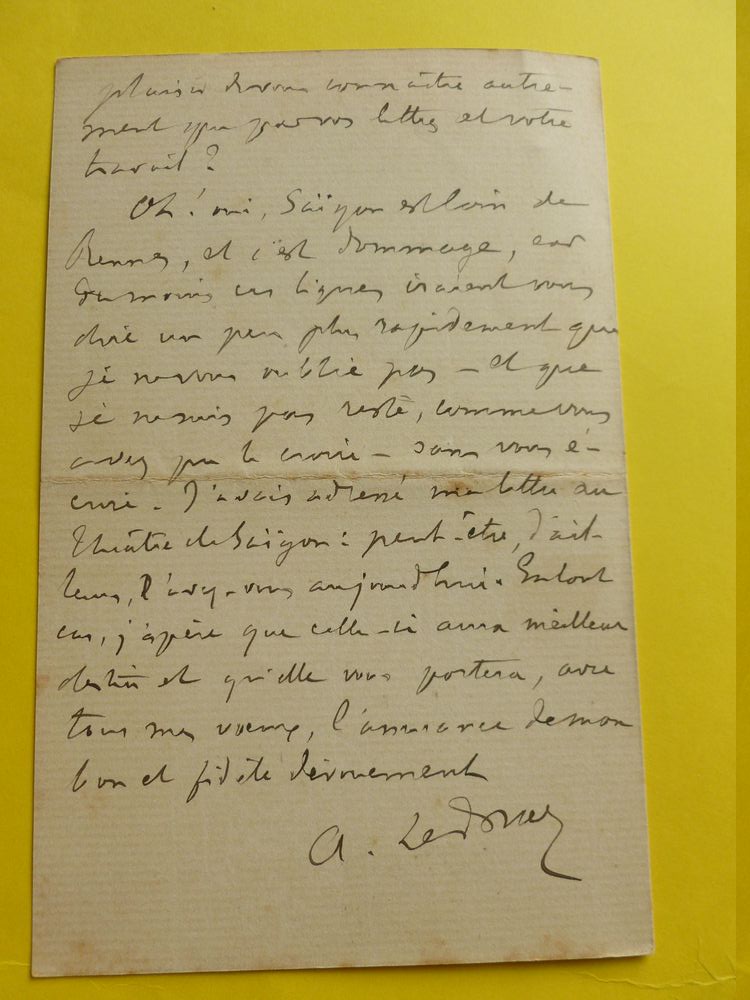 plaisir de vous connaître autre-
ment que par vos lettres et votre
travail ?
Oh ! oui, Saïgon est loin de
Rennes, et c'est dommage, car
du moins ces lignes iraient vous
dire un peu plus rapidement que
je ne vous oublie pas – et que
je ne suis pas resté, comme vous
avez pu le croire – sans vous é-
crire. J'avais adressé ma lettre au
Théâtre de Saïgon : peut-être, d'ail-
leurs, l'avez-vous aujourd'hui. En tout
cas, j'espère que celle-ci aura meilleur
destin et qu'elle vous portera, avec
tous mes vœux, l'assurance de mon
bon et fidèle dévouement
A. Le